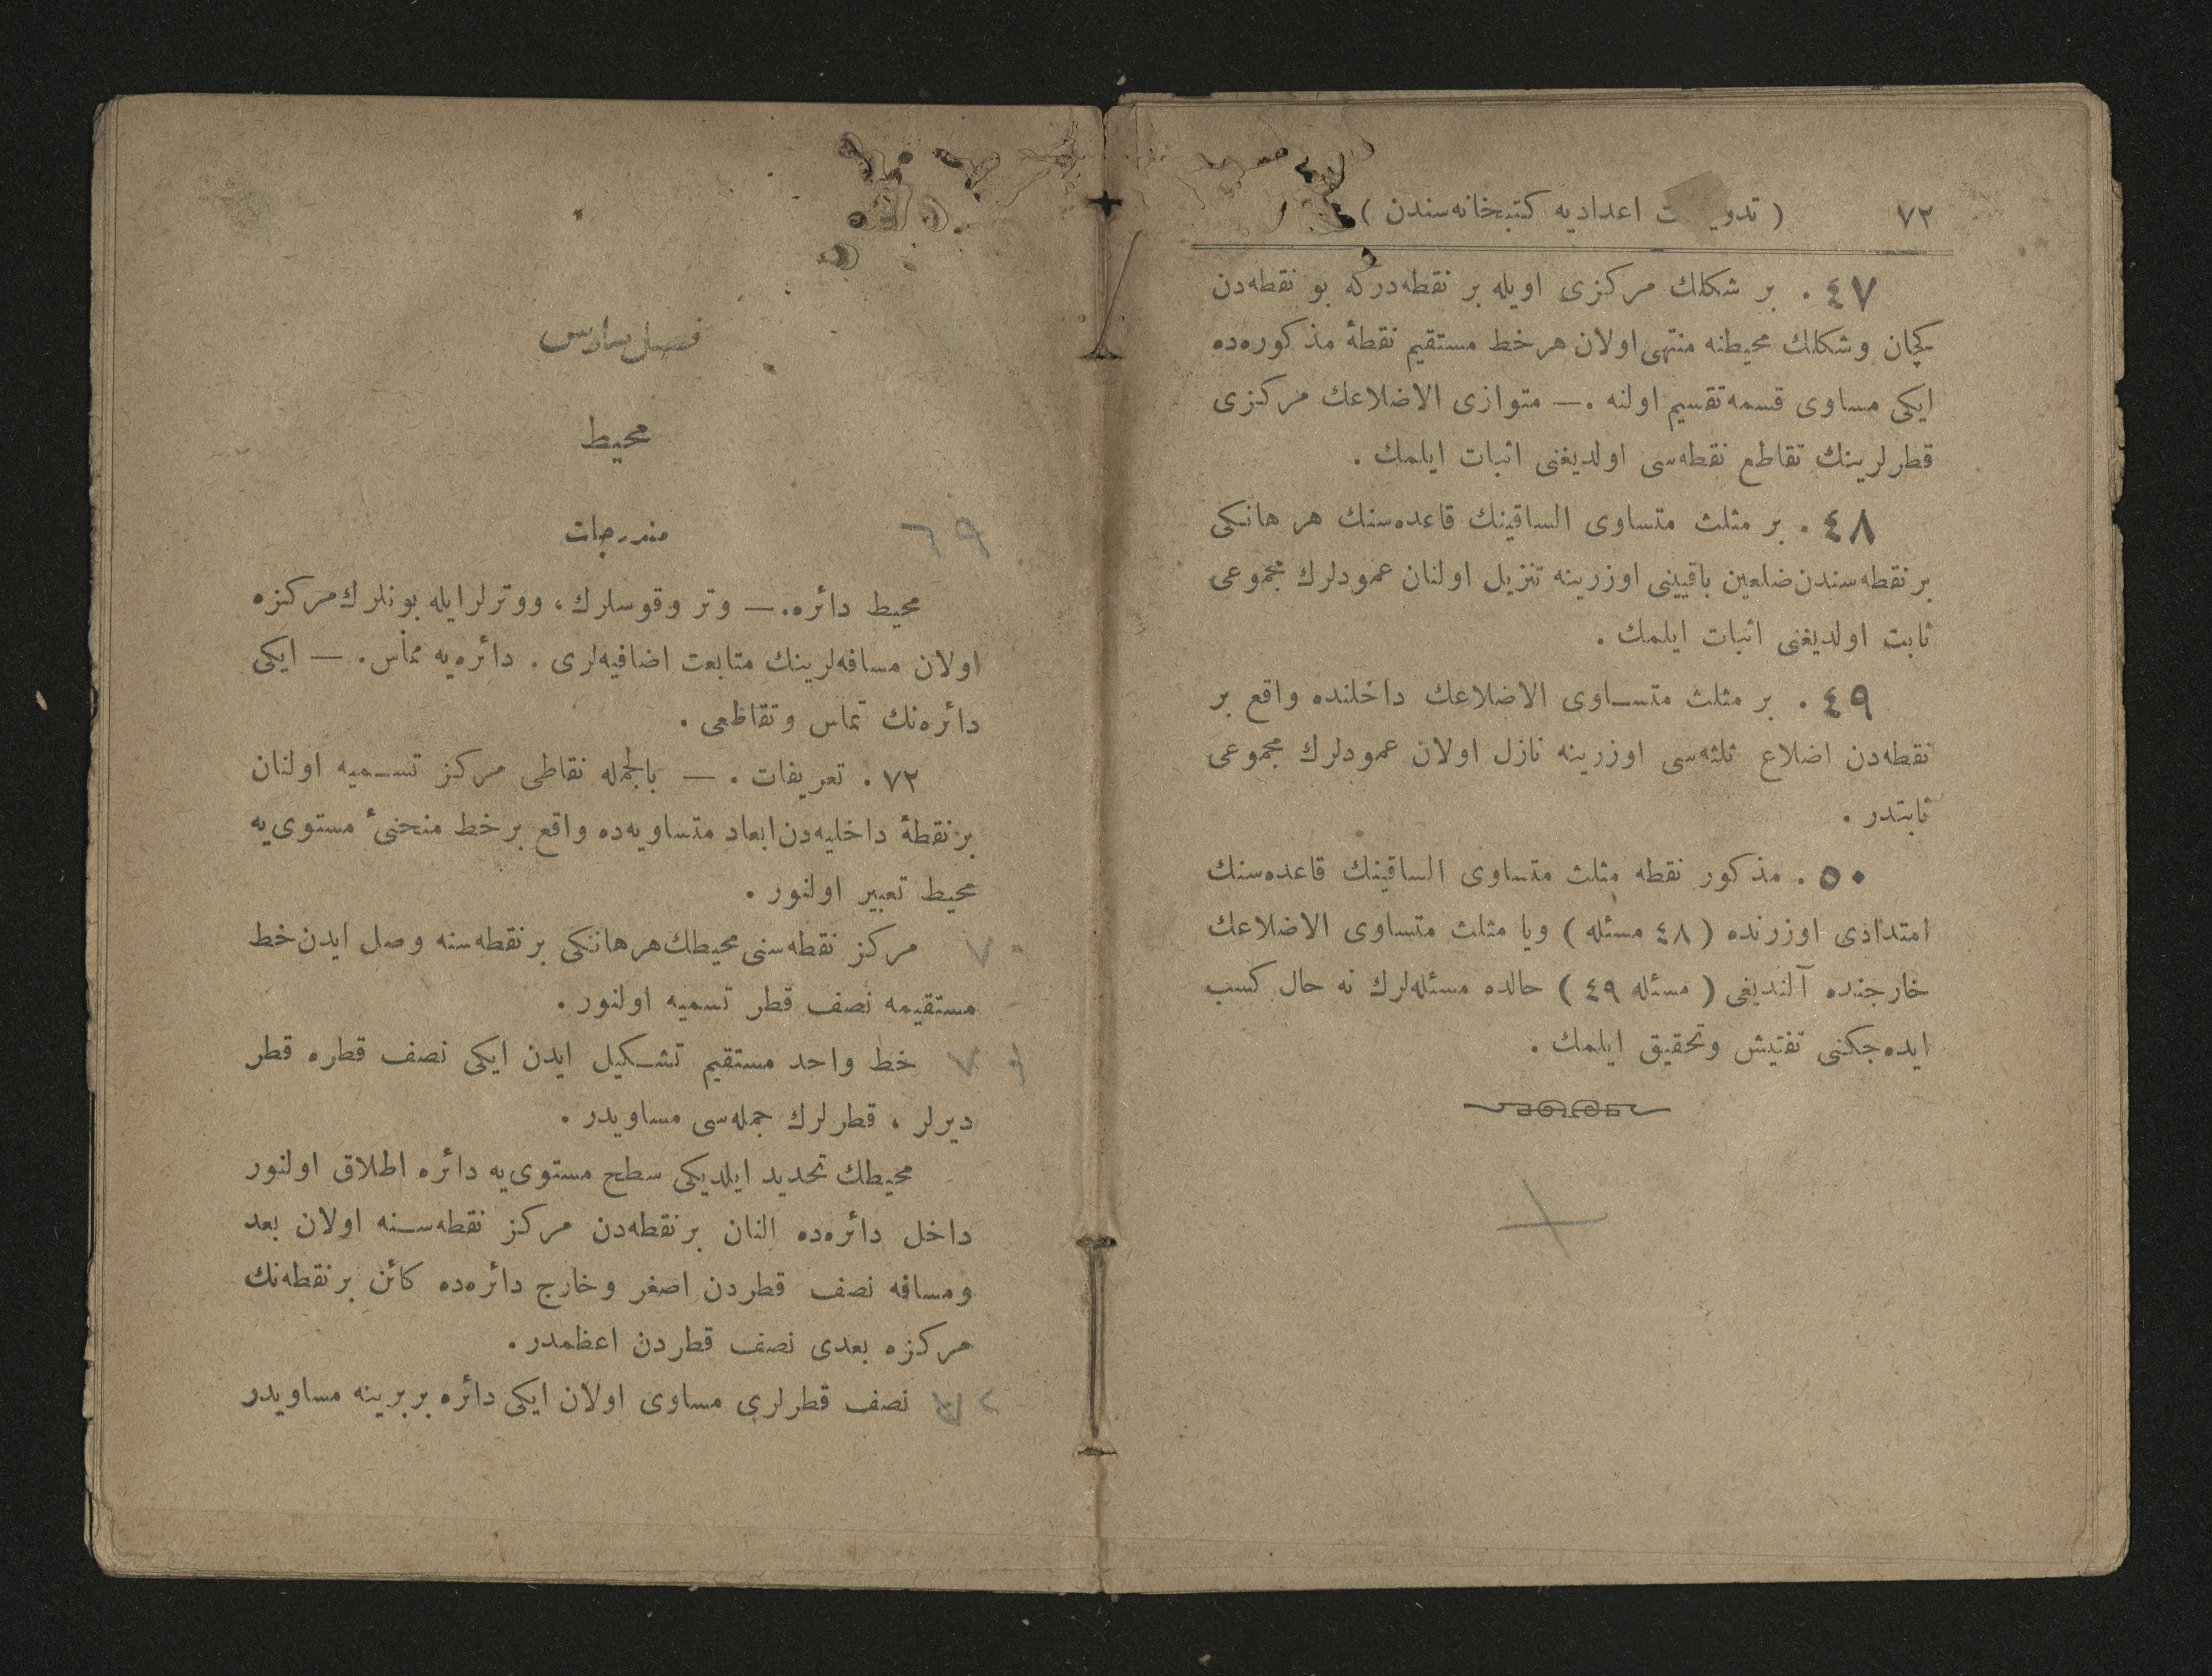 ٧٢ ( تدر ت اعداديه كتبخانه‌سندن )
٤٧ . بر شكلك مركزى اويله بر نقطه‌دركه بو نقطه‌دن
كچان وشكلك محيطنه منتهى اولان هر خط مستقيم نقطهٔ مذكوره‌ده
ايكى مساوى قسمه تقسيم اولنه . — متوازى الاضلاعك مركزى
قطرلرينك تقاطع نقطه‌سى اولديغنى اثبات ايلمك .
٤٨ . بر مثلث متساوى الساقينك قاعده‌سنك هر هانكى
بر نقطه‌سندن ضلعين باقيينى اوزرينه تنزيل اولنان عمودلرك مجموعى
ثابت اولديغنى اثبات ايلمك .
٤٩ . بر مثلث متساوى الاضلاعك داخلنده واقع بر
نقطه‌دن اضلاع ثلثه‌سى اوزرينه نازل اولان عمودلرك مجموعى
ثابتدر .
٥٠ . مذكور نقطه مثلث متساوى الساقينك قاعده‌سنك
امتدادى اوزرنده ( ٤٨ مسئله ) ويا مثلث متساوى الاضلاعك
خارجنده آلنديغى ( مسئله ٤٩ ) حالده مسئله‌لرك نه حال كسب
ايده‌جكنى تفتيش وتحقيق ايلمك .
فصل سادس
محيط
مندرجات
٦٩
محيط دائره. — وتر وقوسلرك ، ووترلر ايله بونلرك مركزه
اولان مسافه‌لرينك متابعت اضافيه‌لرى . دائره‌يه مماس. — ايكى
دائره‌نك تماس وتقاطعى .
٧٢ . تعريفات . — بالجمله نقاطى مركز تسميه اولنان
بر نقطهٔ داخليه‌دن ابعاد متساويه‌ده واقع بر خط منحنىٔ مستوى‌يه
محيط تعبير اولنور .
٧٠ مركز نقطه‌سنى محيطك هر هانكى بر نقطه‌سنه وصل ايدن خط
مستقيمه نصف قطر تسميه اولنور .
٧١ خط واحد مستقيم تشكيل ايدن ايكى نصف قطره قطر
ديرلر ، قطرلرك جمله‌سى مساويدر .
محيطك تحديد ايلديكى سطح مستوى‌يه دائره اطلاق اولنور
داخل دائره‌ده النان بر نقطه‌دن مركز نقطه‌سنه اولان بعد
ومسافه نصف قطردن اصغر وخارج دائره‌ده كائن بر نقطه‌نك
مركزه بعدى نصف قطردن اعظمدر .
نصف قطرلرى مساوى اولان ايكى دائره بربرينه مساويدر